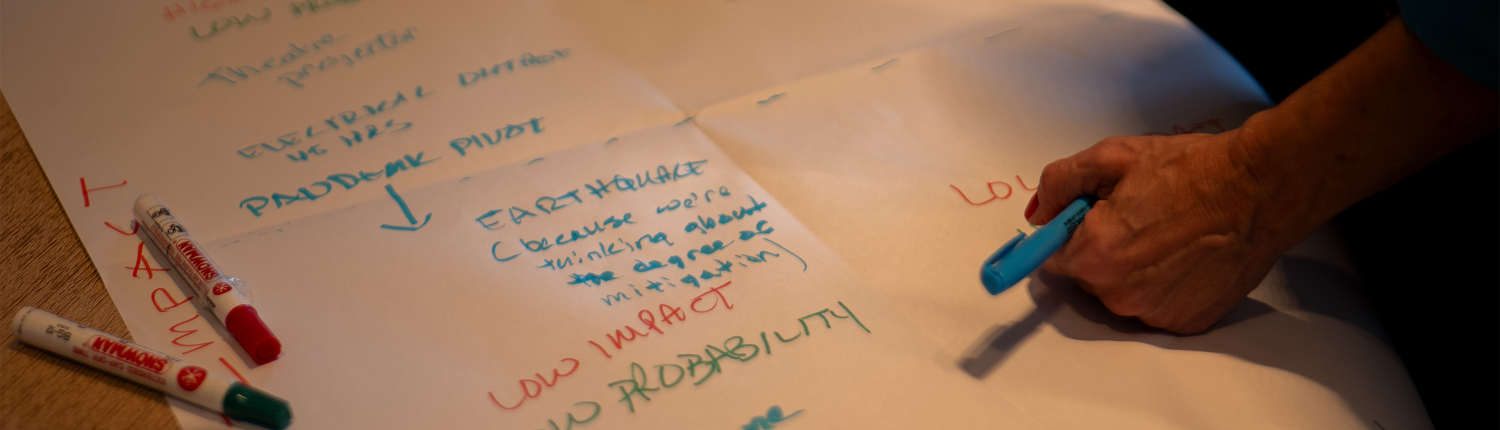 LOW
Theatre
projector
ELECTRICAL OUTAGE
48 HRS
PANDEMIC PIVOT
EARTHQUAKE
(because we're
thinking about
the degree of
mitigation)
LOW IMPACT
LOW PROBABILITY
IMPACT
LOW
SNOWMAN
SNOWMAN